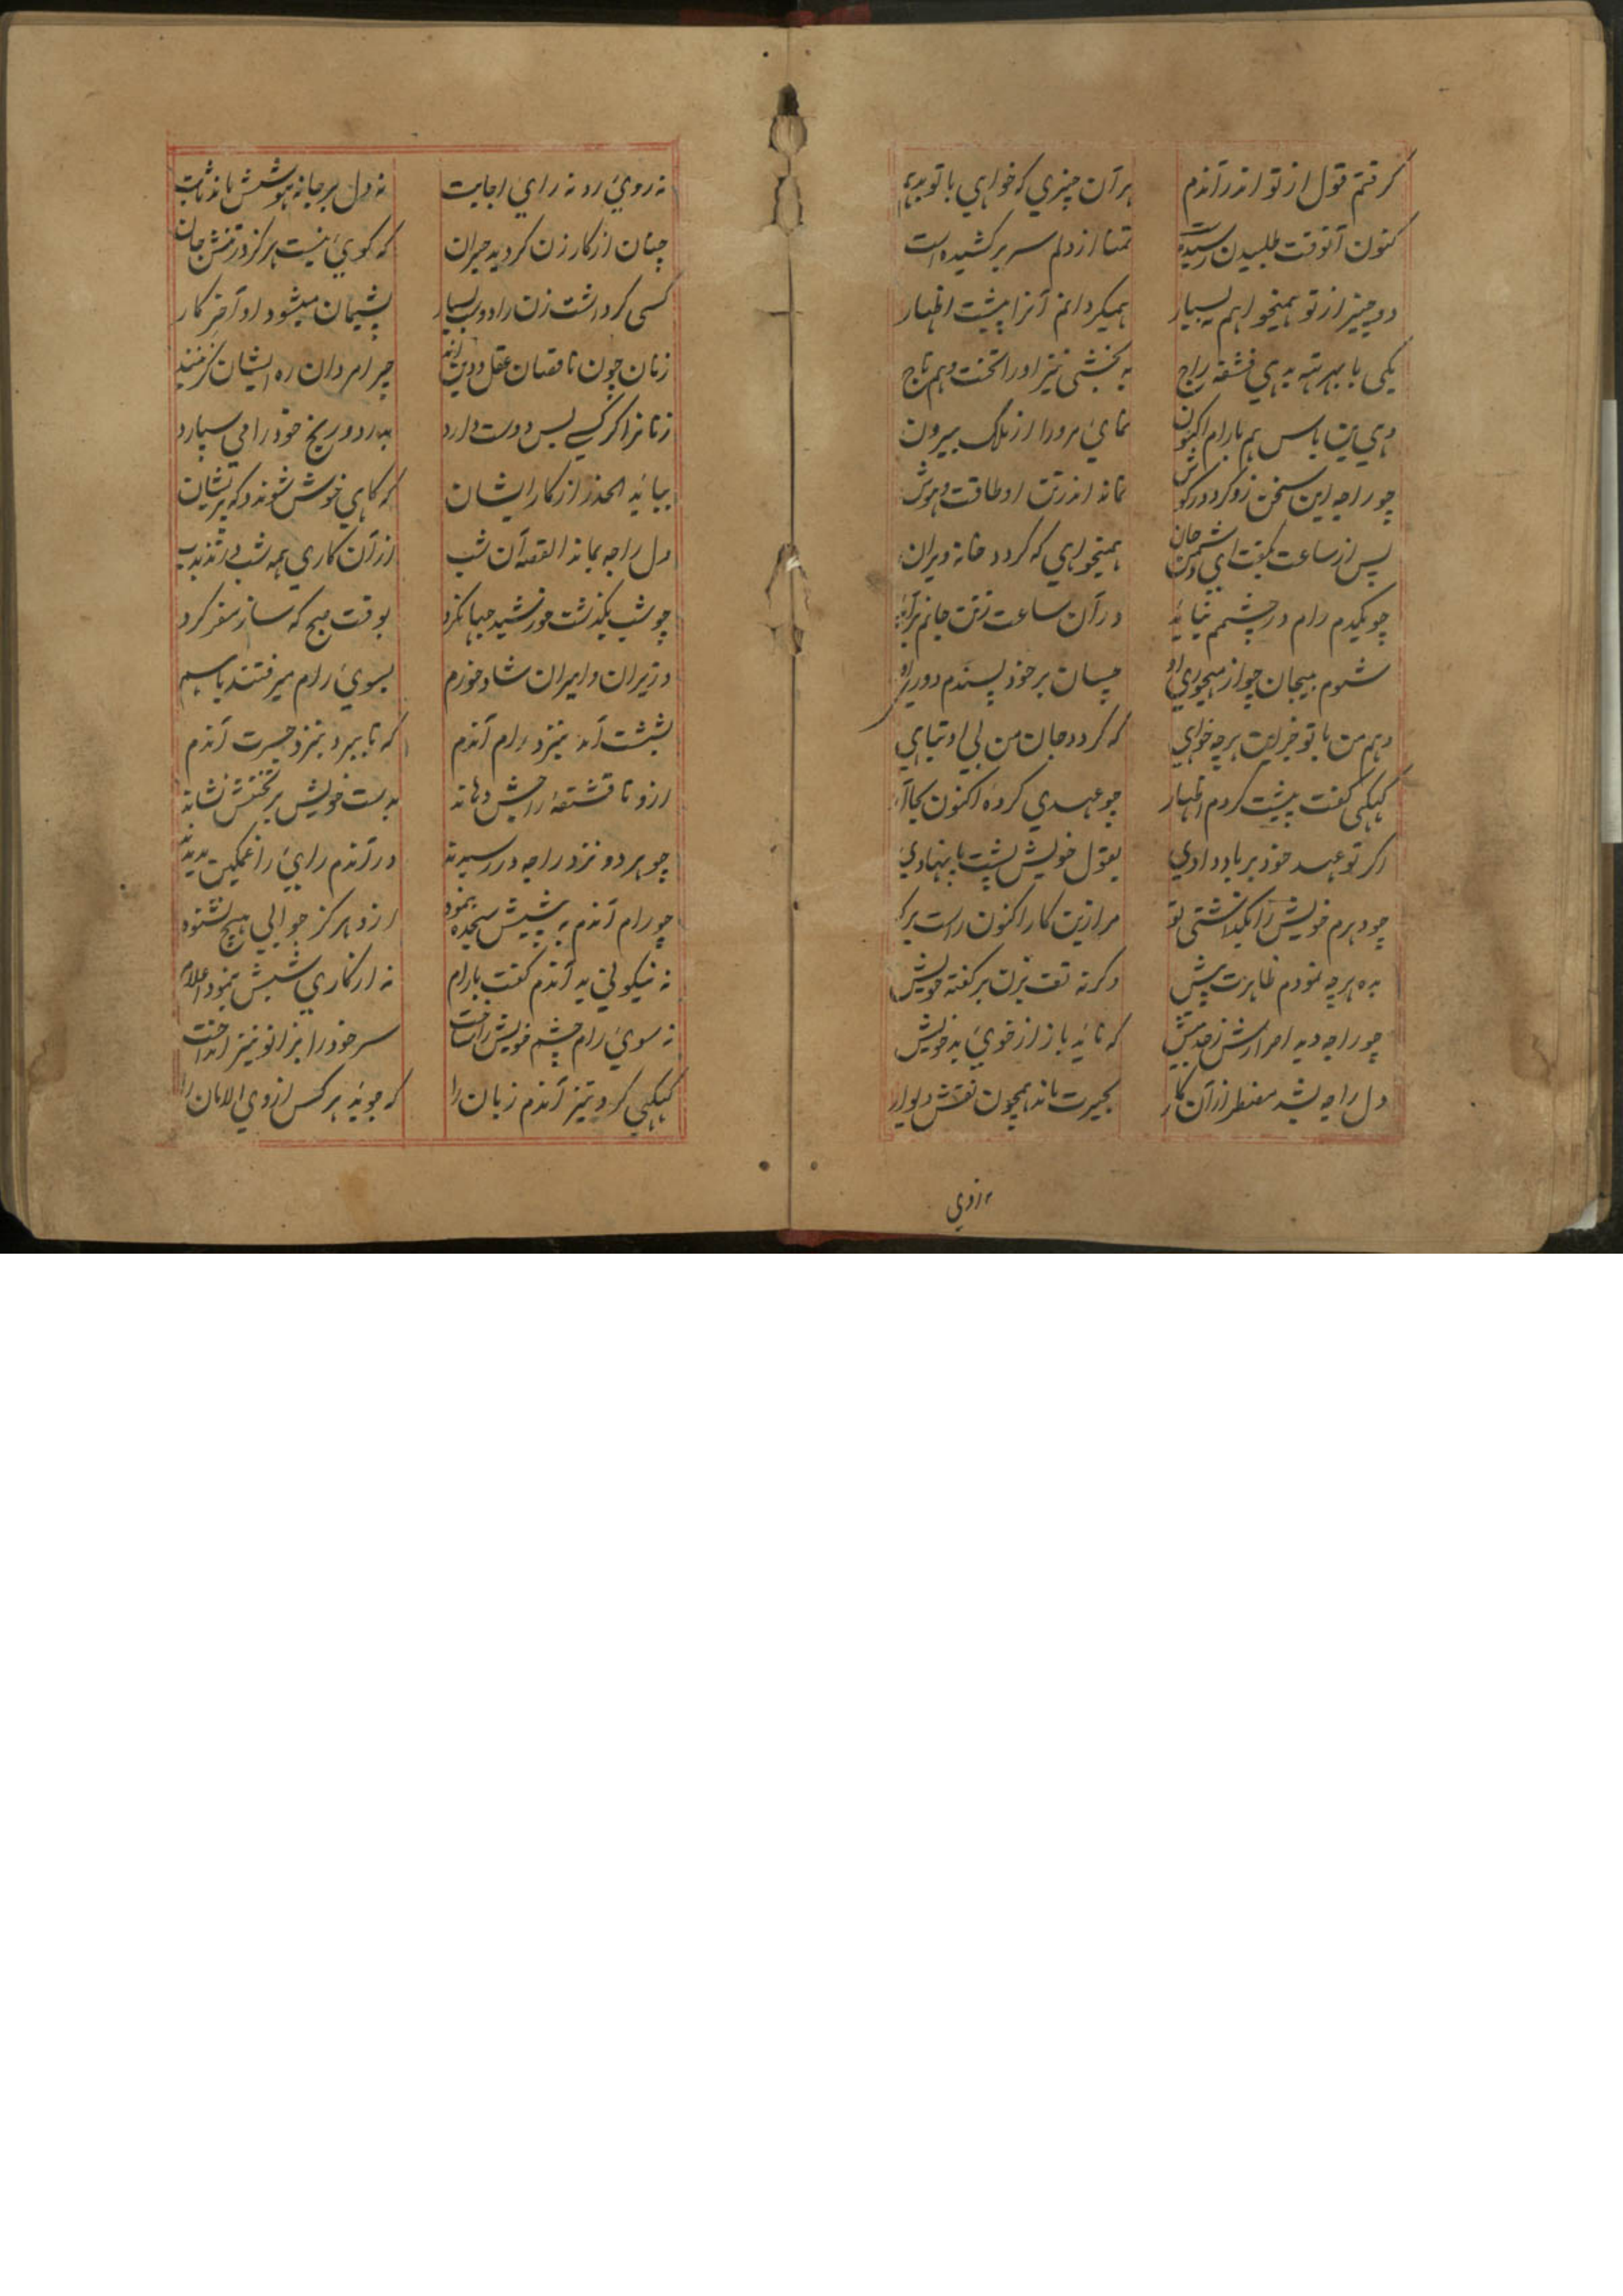 گرفتم قول از تو اندر آندم هر آن چیزی که خواهی با تو بدهم
کنون آنوقت طلبیدن رسیده است تمنا از دلم سر بر کشیده است
دو چیز از تو همیخواهم بسیار همیگردانم آنرا پیشت اظهار
یکی با بهرته بدهی قشقه راج به بخشی نیز او را تخت وهم تاج
دهی بن باس هم با رام اکنون نمائ مرورا از ملک بیرون
چو راجه این سخن زو کرد در گوش نمانه اندر تن او طاقت و هوش
پس از ساعت بگفت ای دشمن جان همیخواهی که گردد خانه ویران
چو یکدم رام در چشمم نیاید در آن ساعت ز تن جانم برآید
شوم بیجان چو از مهجوری او چسان بر خود پسندم دوری او
دهم من با تو جز این هرچه خواهی که گردد جان من بی او تباهی
کیکی گفت پیشت کردم اظهار چو عهدی کرده اکنون بجا آر
اگر تو عهد خود بر باد دادی بقول خویش پشت پا نهادی
چو دهرم خویش را بگذاشتی تو مرا زین کار اکنون راست برگو
بده هرچه نمودم ظاهرت پیش وگرنه تف بزن بر گفته خویش
چو راجه دید امرارش ز حد بیش که ناید باز از خوئ بد خویش
دل راجه بشد مضطر از آن کار بحیرت ماند همچون نقش دیوار
نه روئ رد نه رائ اجابت نه دل بر جا نه هوشش ماند ثابت
چنان از کار زن گردید حیران که گوئ نیست هرگز در تنش جان
کسی کرد داشت زن را دوب بسیار پشیمان میشود او آخر کار
زنان چون ناقصان عقل و دین اند چرا مردان ره ایشان گزینند
زنانرا گر کسے بس دوست دارد بدرد و رنج خود را می سپارد
بباید الحذر از کار ایشان که گاهی خوش شوند و گه پریشان
دل راجه بماند القصه آن شب از آن کاری همه شب در تذبذب
چو شب بگذشت خورشید جهانگرد بوقت صبح که ساز سفر کرد
وزیران و امیران شاد و خورم بسوئ رام میرفتند باهم
بششت آمد بنزد رام آندم که تا ببرد بنزد جسرت آندم
ازو تا قشقهٔ راجش دهاند بدست خویش بر تختش نشاند
چو هر دو نزد راجه در رسیدند در آندم رائ را غمگین بدیدند
چو رام آندم به پیشش سجده بنمود ازو هرگز جوابی هیچ نشنود
نه نیکوئی بد آندم گفت با رام نه از کاری ششش بنمود اعلام
نه سوئ رام چشم خویش انداخت سر خود را بزانو نیز انداخت
کیکهی کرد تیز آندم زبان را که جوید هر کس از وی الامان را
نه روی